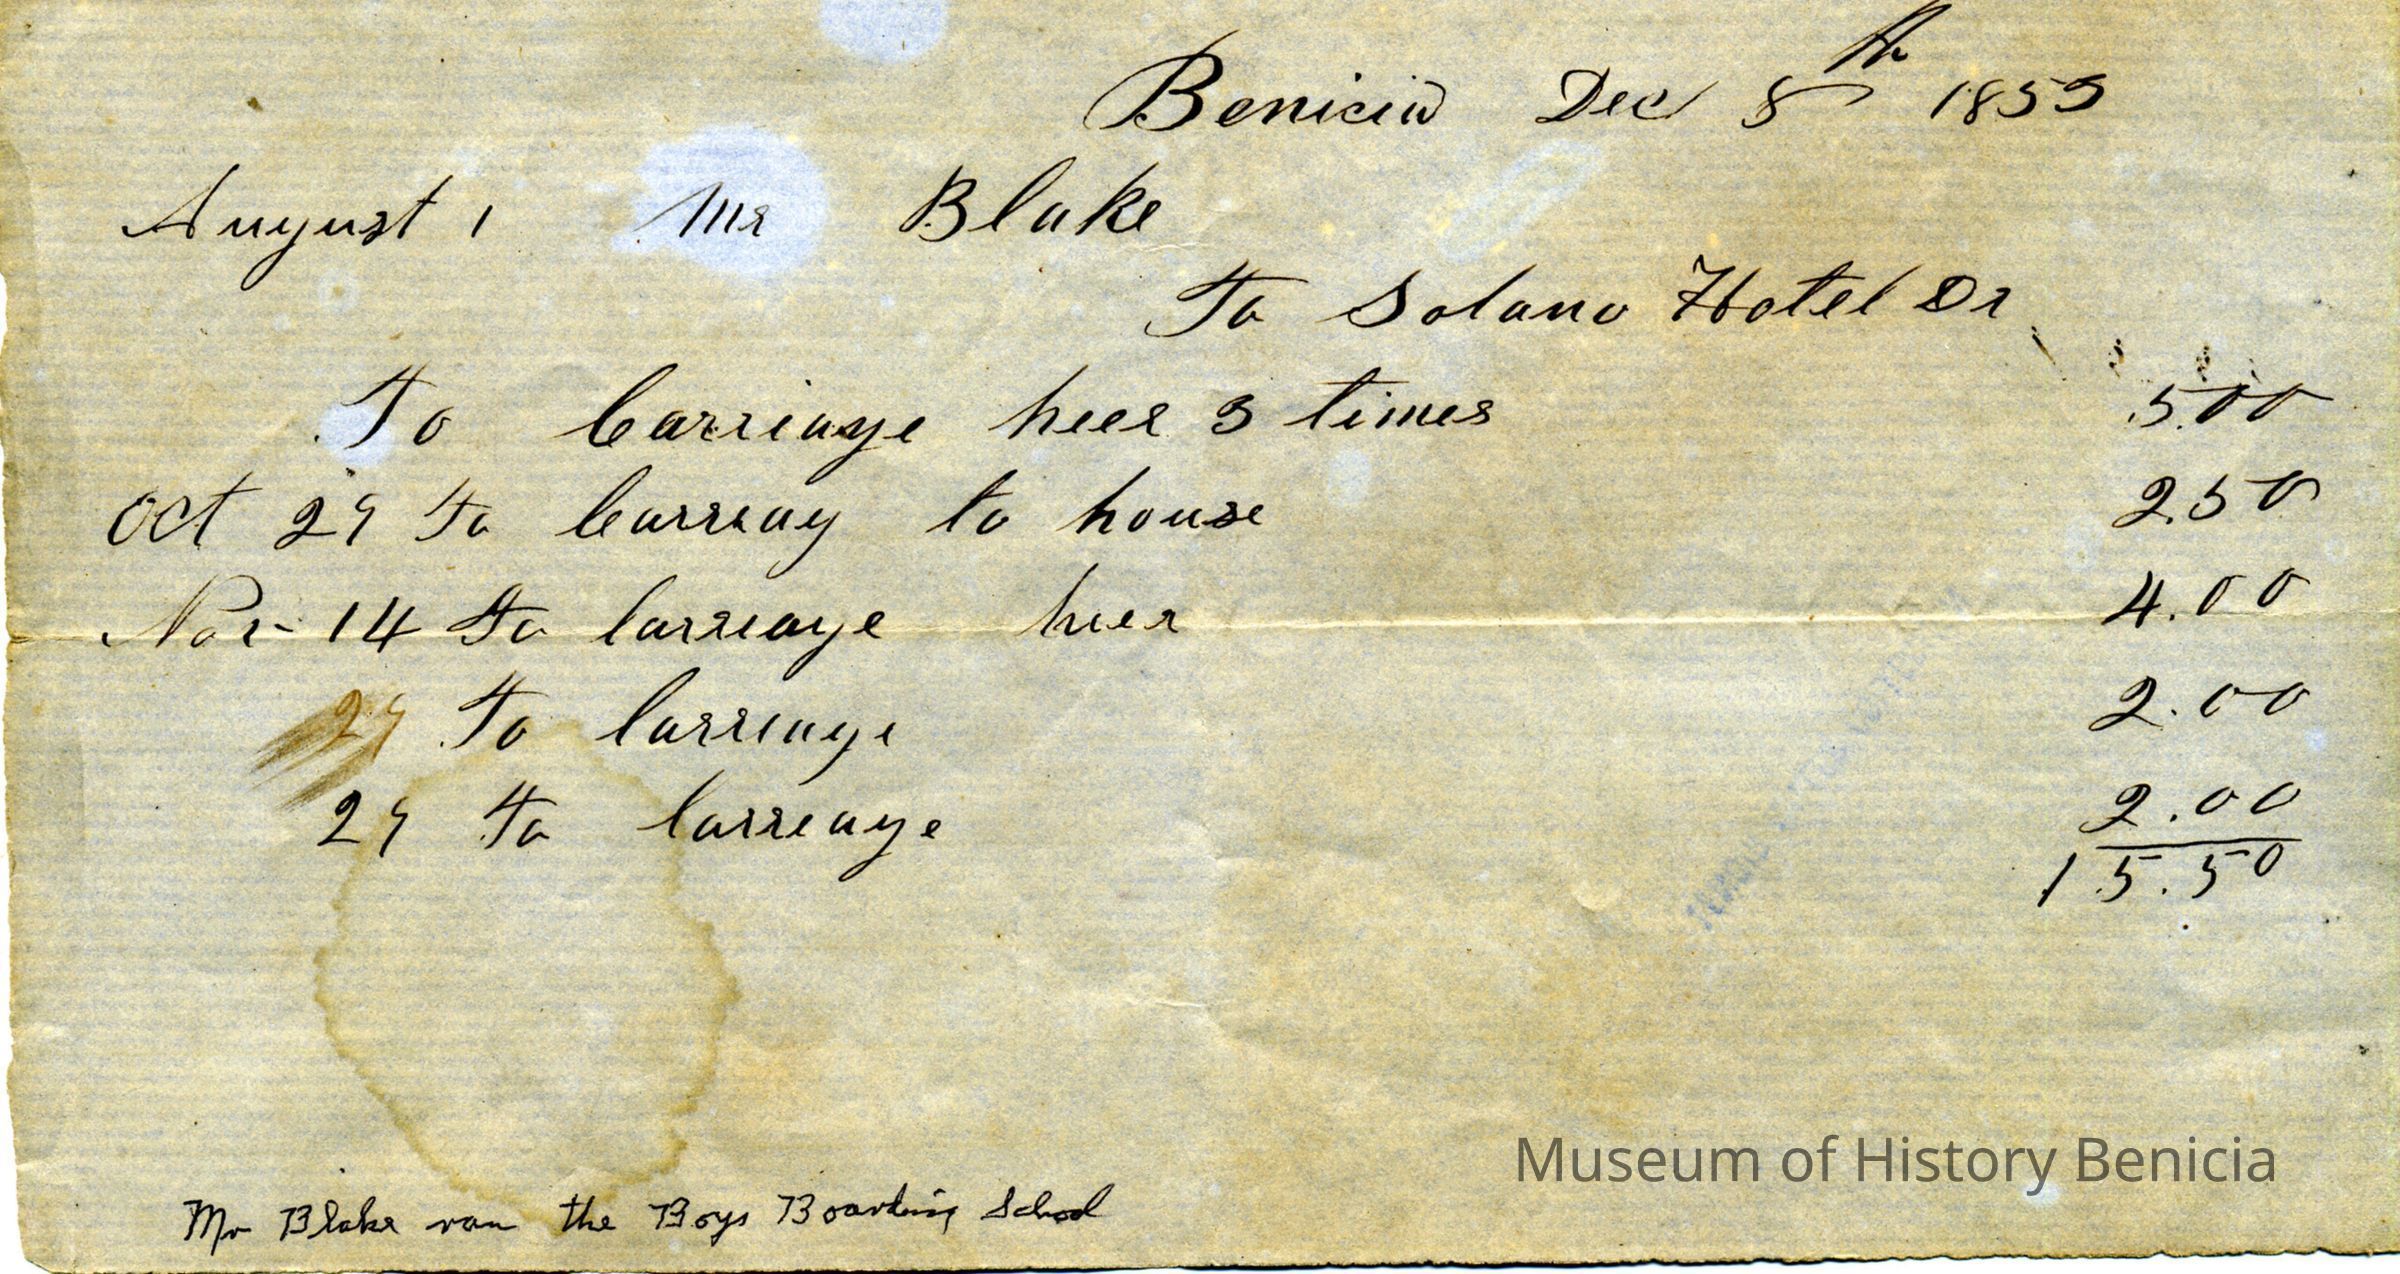 Benicia Dec 5th 1855
August 1 Mr Blake
To Solano Hotel Dr
To Carriage heer 3 times 5.00
Oct 29 To Carriay to house 2.50
Nov 14 To Carreage heer 4.00
29 To Carreage 2.00
29 To Carreage 2.00
15.50
Mr Blake ran the Boys Boarding School
Museum of History Benicia